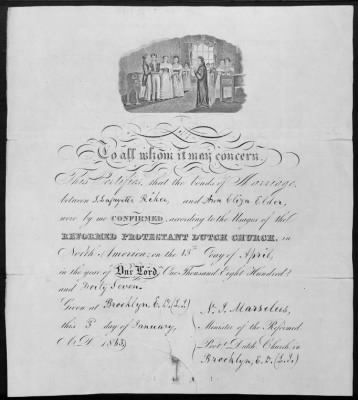 To all whom it may concern.
This Certifies, that the bonds of Marriage,
between J. Lafayette Riker and Ann Eliza Elder,
were by me CONFIRMED, according to the Usages of the
REFORMED PROTESTANT DUTCH CHURCH, in
North America; on the 15th Day of April,
in the year of Our Lord, One Thousand Eight Hundred &
and Forty Seven.
Given at Brooklyn, E. D. (L. I.)
this 3d day of January,
A. D. 1863
N. I. Marselus,
Minister of the Reformed
Prot. Dutch Church in
Brooklyn, E. D. (L. I.)